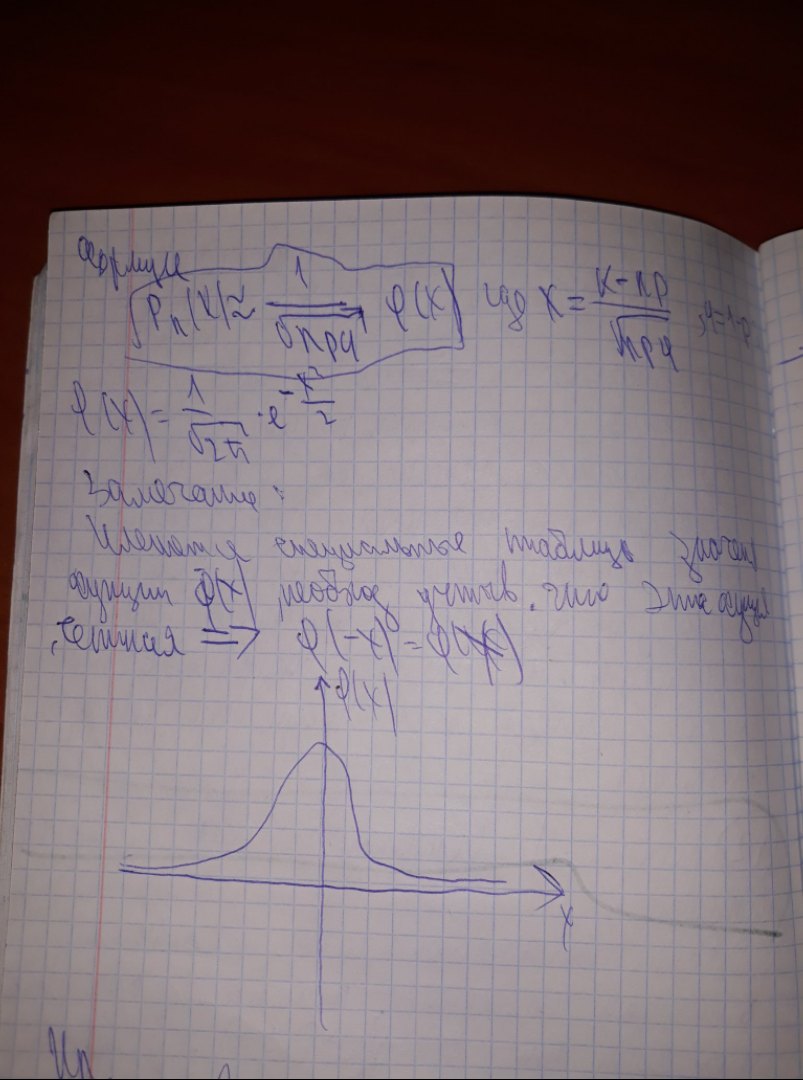 формула
Pn(k) ≈ 1/√npq φ(x) где x = k-np/√npq , q=1-p
φ(x) = 1/√2π · e^-x²/2
Замечание:
Имеются специальные таблицы значен
функции φ(x) необход учитыв. что эта функц
четная => φ(-x) = φ(x)
φ(x)
x